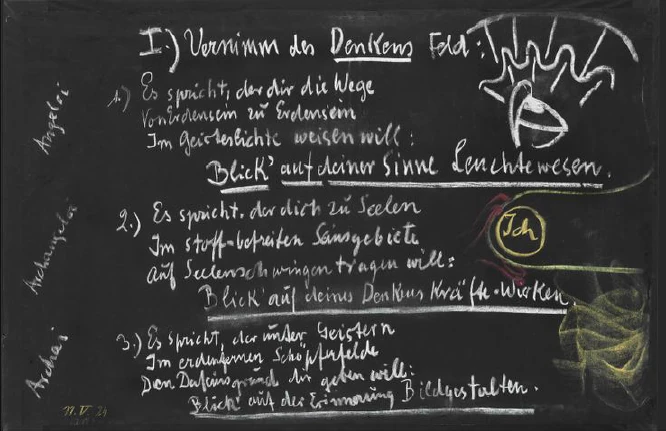 I.) Vernimm des Denkens Feld:
Angeloi
1.) Es spricht, der dir die Wege
Von Erdensein zu Erdensein
Im Geisteslichte weisen will:
Blick' auf deiner Sinne Leuchtewesen.
Archangeloi
2.) Es spricht, der dich zu Seelen
Im stoff-befreiten Seinsgebiete
Auf Seelenschwingen tragen will:
Blick' auf deines Denkens Kräfte-Wirken.
Ich
Archai
3.) Es spricht, der unter Geistern
Im erdenfernen Schöpferfelde
Den Daseinsgrund dir geben will:
Blick' auf der Erinnerung Bildgestalten.